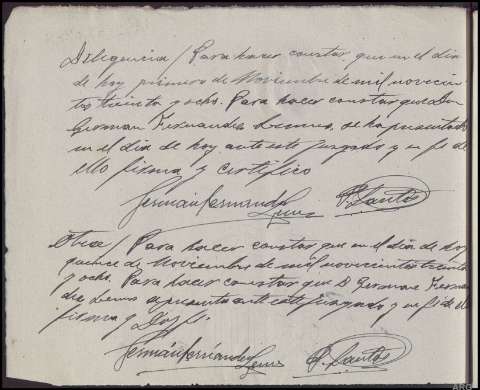 Diligencia / Para hacer constar que en el dia
de hoy primero de Noviembre de mil novecien
tos treinta y ocho. Para hacer constar que Don
German Fernandez Lemus, se ha presentado
en el dia de hoy ante este Juzgado y en fe de
ello firma y certifico
Germán Fernandez P. Santos
Lemus
Otra / Para hacer constar que en el dia de hoy
quince de Noviembre de mil novecientos treinta
y ocho. Para hacer constar que D German Fernan
dez Lemus se presenta ante este Juzgado y en fe de
firma y Doy fe.
Germán Fernández Lemus P. Santos
ARG